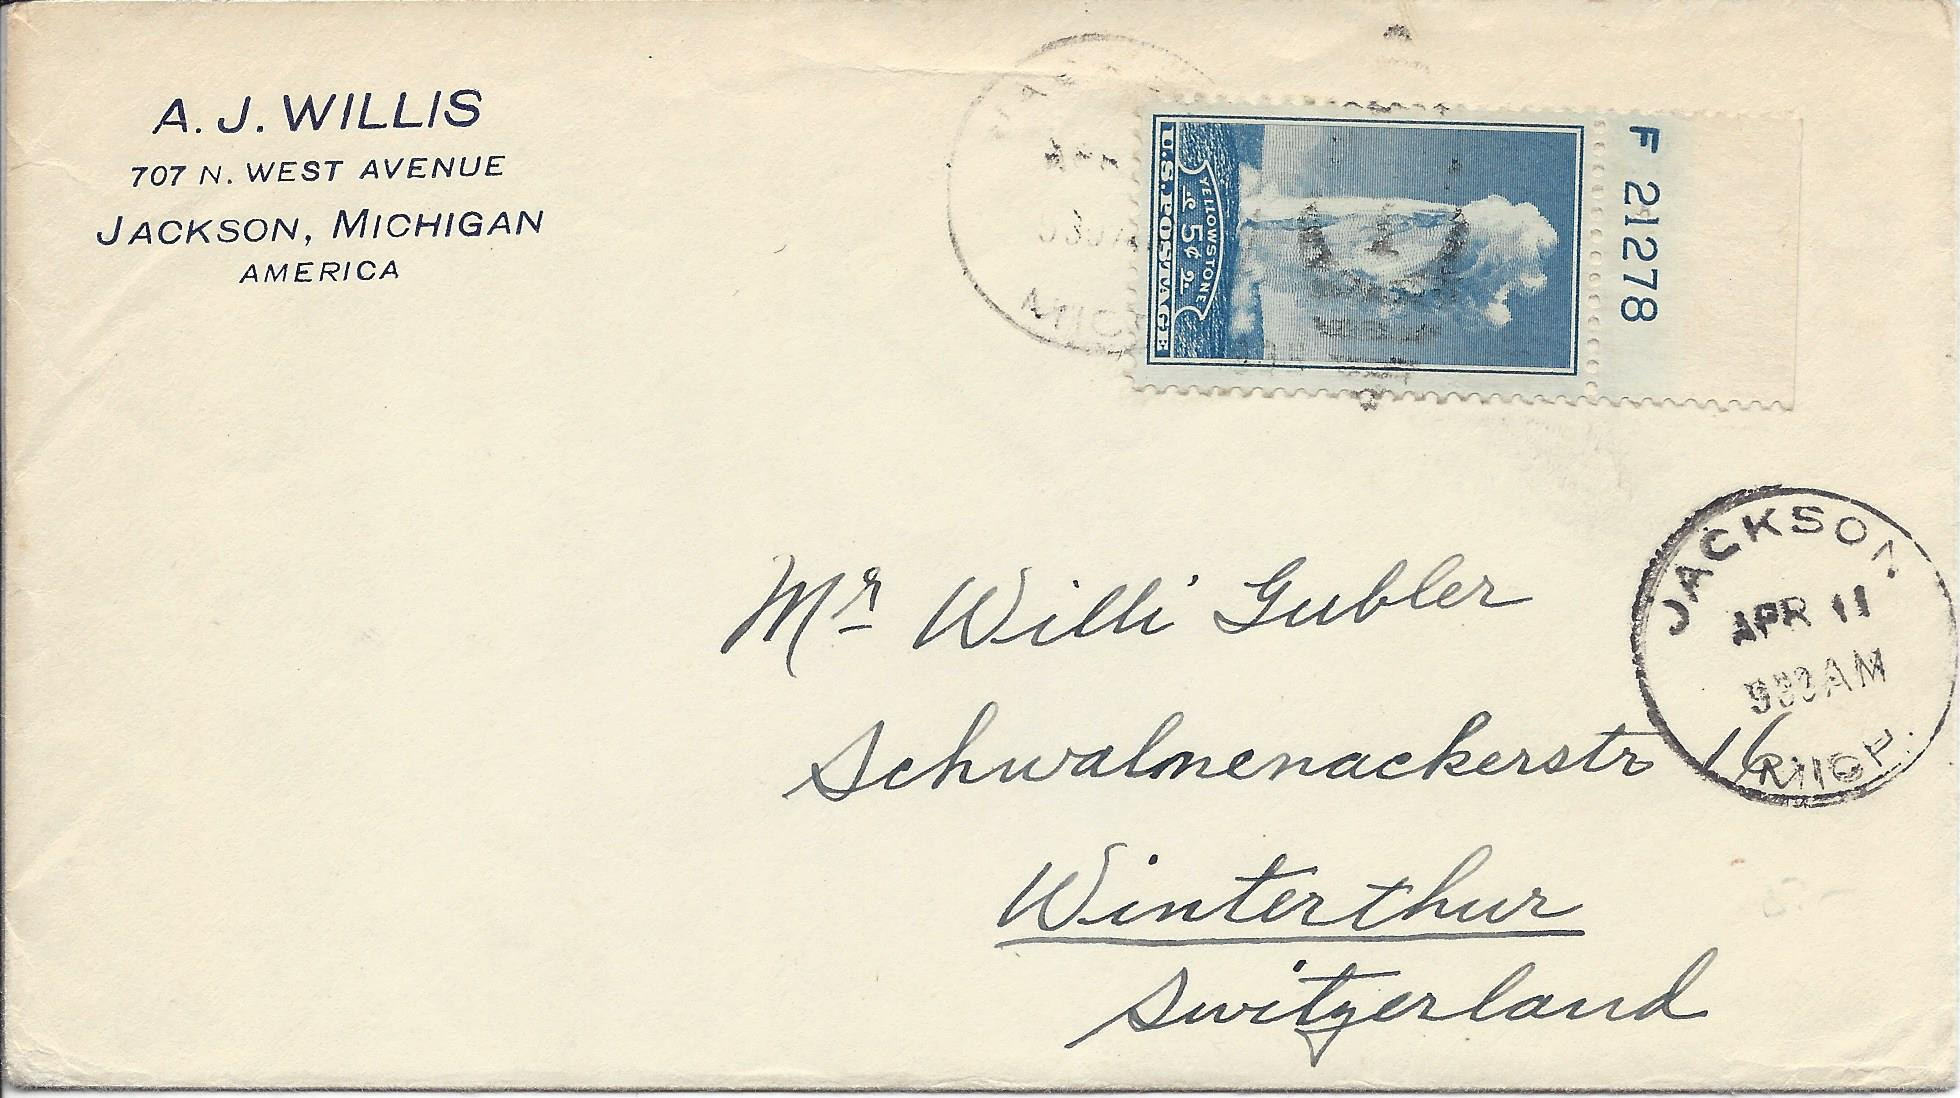 A. J. WILLIS
707 N. WEST AVENUE
JACKSON, MICHIGAN
AMERICA
U.S. POSTAGE
YELLOWSTONE
5¢
F 21278
JACKSON
APR 11
AM
MICH.
Mr Willi Gubler
Schwalmenackerstr 16
Winterthur
Switzerland